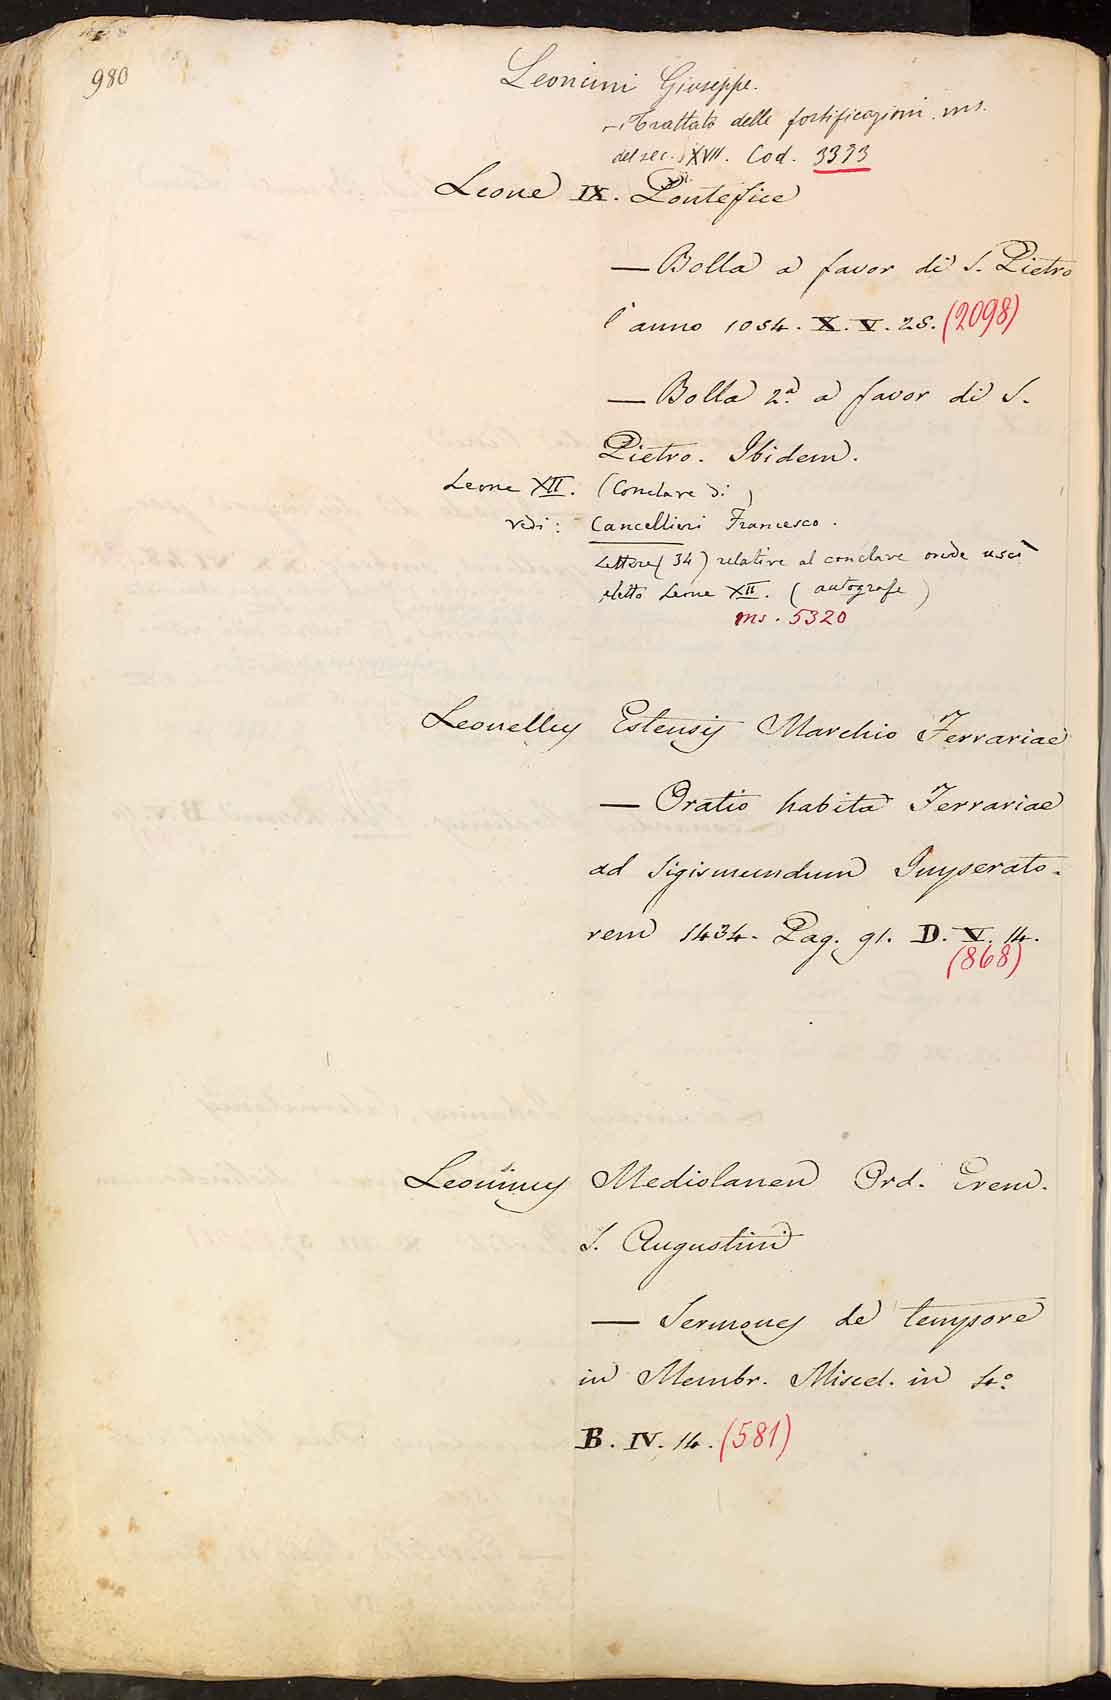 980
Leoncini Giuseppe.
— Trattato delle fortificazioni. ms.
del sec. XVII. Cod. 3393
Leone IX. Pontefice
— Bolla a favor di S. Pietro
l'anno 1054. X. V. 28. (2098)
— Bolla 2.ª a favor di S.
Pietro. Ibidem.
Leone XII. (Conclave di)
vedi: Cancellieri Francesco.
Lettere (34) relative al conclave onde uscì
eletto Leone XII. (autografe)
ms. 5320
Leonellus Estensis Marchio Ferrariae
— Oratio habita Ferrariae
ad Sigismundum Imperato-
rem 1434. Pag. 91. D. V. 14.
(868)
Mediolanen Ord. Erem.
S. Augustini
— Sermones de tempore
in Membr. Miscel. in 4.º
B. IV. 14. (581)